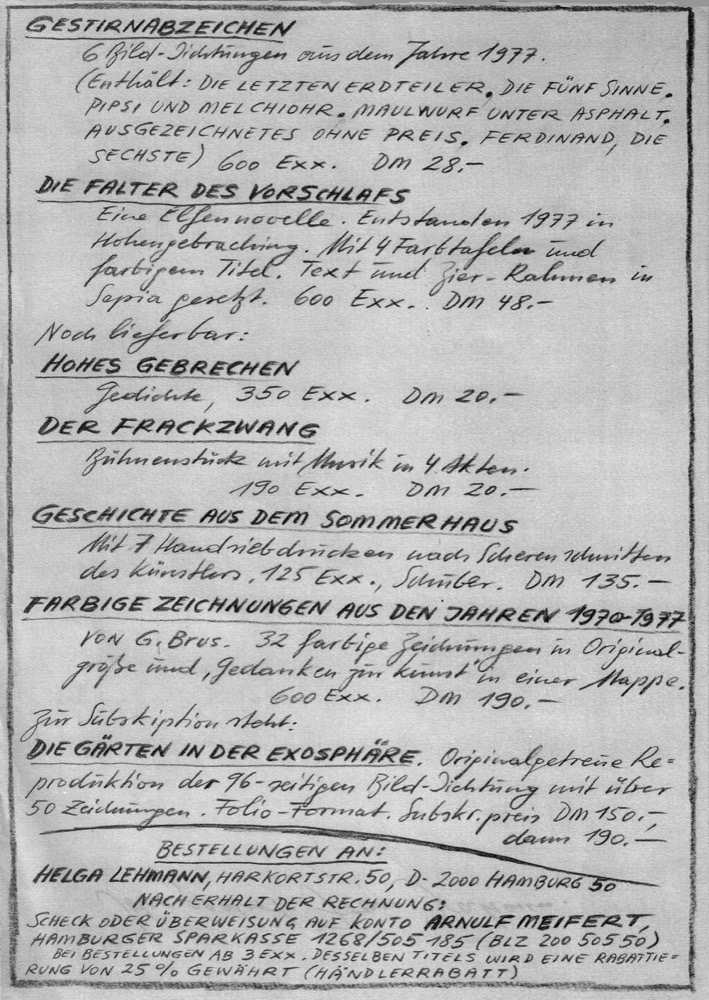 GESTIRNABZEICHEN
6 Bild-Dichtungen aus dem Jahre 1977.
(Enthält: DIE LETZTEN ERDTEILER. DIE FÜNF SINNE.
PIPSI UND MELCHIOHR. MAULWURF UNTER ASPHALT.
AUSGEZEICHNETES OHNE PREIS. FERDINAND, DIE
SECHSTE) 600 Exx. DM 28.-
DIE FALTER DES VORSCHLAFS
Eine Elfennovelle. Entstanden 1977 in
Hohengebraching. Mit 4 Farbtafeln und
farbigem Titel. Text und Zier-Rahmen in
Sepia gesetzt. 600 Exx. DM 48.-
Noch lieferbar:
HOHES GEBRECHEN
Gedichte, 350 Exx. DM 20.-
DER FRACKZWANG
Bühnenstück mit Musik in 4 Akten.
190 Exx. DM 20.-
GESCHICHTE AUS DEM SOMMERHAUS
Mit 7 Handsiebdrucken nach Scherenschnitten
des Künstlers. 125 Exx., Schuber. DM 135.-
FARBIGE ZEICHNUNGEN AUS DEN JAHREN 1970-1977
von G. Brus. 32 farbige Zeichnungen in Original-
größe und 'Gedanken zur Kunst' in einer Mappe.
600 Exx. DM 190.-
Zur Subskiption steht:
DIE GÄRTEN IN DER EXOSPHÄRE. Originalgetreue Re=
produktion der 96-seitigen Bild-Dichtung mit über
50 Zeichnungen. Folio-Format. Subskr.preis DM 150.-,
dann 190.-
BESTELLUNGEN AN:
HELGA LEHMANN, HARKORTSTR. 50, D-2000 HAMBURG 50
NACH ERHALT DER RECHNUNG:
SCHECK ODER ÜBERWEISUNG AUF KONTO ARNULF MEIFERT,
HAMBURGER SPARKASSE 1268/505 185 (BLZ 200 505 50)
BEI BESTELLUNGEN AB 3 EXX. DESSELBEN TITELS WIRD EINE RABATTIE=
RUNG VON 25% GEWÄHRT (HÄNDLERRABATT)